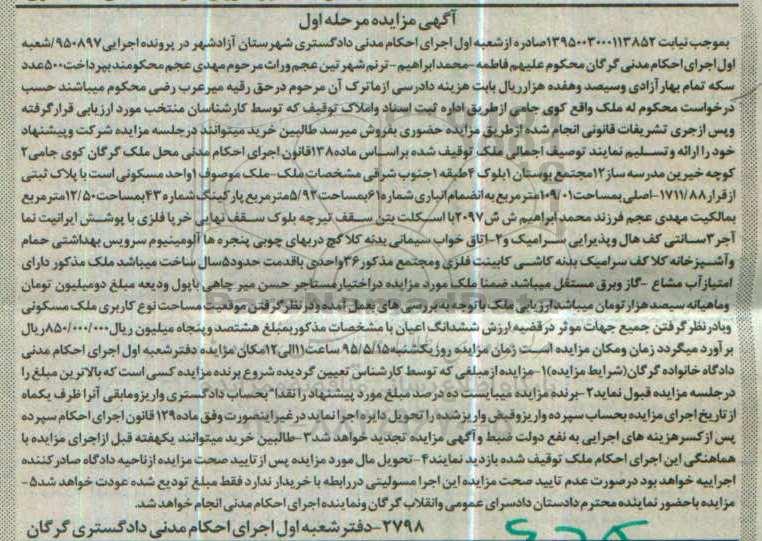 آگهی مزایده مرحله اول
بموجب نیابت ۱۳۹۵۰۰۳۰۰۰۱۱۳۸۵۲ صادره از شعبه اول اجرای احکام مدنی دادگستری شهرستان آزادشهر در پرونده اجرایی ۹۵۰۸۹۷/شعبه
اول اجرای احکام مدنی گرگان محکوم علیهم فاطمه-محمدابراهیم-ترنم شهرتین عجم وراث مرحوم مهدی عجم محکومند بپرداخت ۵۰۰عدد
سکه تمام بهار آزادی و سیصد و هفده هزار ریال بابت هزینه دادرسی از ماترک آن مرحوم در حق رقیه میرعرب رضی محکوم میباشند حسب
درخواست محکوم له ملک واقع کوی جامی از طریق اداره ثبت اسناد و املاک توقیف که توسط کارشناسان منتخب مورد ارزیابی قرار گرفته
وپس از جری تشریفات قانونی انجام شده از طریق مزایده حضوری بفروش میرسد طالبین خرید میتوانند در جلسه مزایده شرکت و پیشنهاد
خود را ارائه و تسلیم نمایند توصیف اجمالی ملک توقیف شده بر اساس ماده ۱۳۸ قانون اجرای احکام مدنی محل ملک گرگان کوی جامی ۲
کوچه خیرین مدرسه ساز ۱۲مجتمع بوستان ۱بلوک ۴طبقه ۱جنوب شرقی مشخصات ملک-ملک موصوف ۱واحد مسکونی است با پلاک ثبتی
از قرار ۱۷۱۱/۸۸-اصلی بمساحت ۱۰۹/۰۱متر مربع به انضمام انباری شماره ۶۱بمساحت ۵/۹۲متر مربع پارکینگ شماره ۴۳بمساحت ۱۲/۵۰متر مربع
بمالکیت مهدی عجم فرزند محمدابراهیم ش ش ۲۰۹۷با اسکلت بتن سقف تیرچه بلوک سقف نهایی خرپا فلزی با پوشش ایرانیت نما
آجر ۳سانتی کف هال و پذیرایی سرامیک و ۲-اتاق خواب سیمانی بدنه کلا گچ دربهای چوبی پنجره ها آلومینیوم سرویس بهداشتی حمام
وآشپزخانه کلا کف سرامیک بدنه کاشی کابینت فلزی و مجتمع مذکور ۳۶واحدی با قدمت حدود ۵سال ساخت میباشد ملک مذکور دارای
امتیاز آب مشاع -گاز و برق مستقل میباشد ضمنا ملک مورد مزایده در اختیار مستاجر حسن میر چاهی با پول ودیعه مبلغ دو میلیون تومان
وماهیانه سیصد هزار تومان میباشد ارزیابی ملک با توجه به بررسی های بعمل آمده و در نظر گرفتن موقعیت مساحت نوع کاربری ملک مسکونی
وبا در نظر گرفتن جمیع جهات موثر در قضیه ارزش ششدانگ اعیان با مشخصات مذکور بمبلغ هشتصد و پنجاه میلیون ریال ۸۵۰/۰۰۰/۰۰۰ریال
برآورد میگردد زمان و مکان مزایده است زمان مزایده روز یکشنبه ۹۵/۵/۱۵ ساعت ۱۱الی ۱۲مکان مزایده دفتر شعبه اول اجرای احکام مدنی
دادگاه خانواده گرگان (شرایط مزایده) ۱-مزایده از مبلغی که توسط کارشناس تعیین گردیده شروع برنده مزایده کسی است که بالاترین مبلغ را
در جلسه مزایده قبول نماید ۲-برنده مزایده میبایست ده درصد مبلغ مورد پیشنهاد را نقدا" بحساب دادگستری واریز و مابقی آنرا ظرف یکماه
از تاریخ اجرای مزایده بحساب سپرده واریز و فیش واریز شده را تحویل دایره اجرا نماید در غیر اینصورت وفق ماده ۱۲۹ قانون اجرای احکام سپرده
پس از کسر هزینه های اجرایی به نفع دولت ضبط و آگهی مزایده تجدید خواهد شد ۳-طالبین خرید میتوانند یکهفته قبل از اجرای مزایده با
هماهنگی این اجرای احکام ملک توقیف شده بازدید نمایند ۴-تحویل مال مورد مزایده پس از تایید صحت مزایده از ناحیه دادگاه صادر کننده
اجراییه خواهد بود در صورت عدم تایید صحت مزایده این اجرا مسولیتی در رابطه با خریدار ندارد فقط مبلغ تودیع شده عودت خواهد شد ۵-
مزایده با حضور نماینده محترم دادستان دادسرای عمومی و انقلاب گرگان و نماینده اجرای احکام مدنی انجام خواهد شد.
۲۷۹۸-دفتر شعبه اول اجرای احکام مدنی دادگستری گرگان